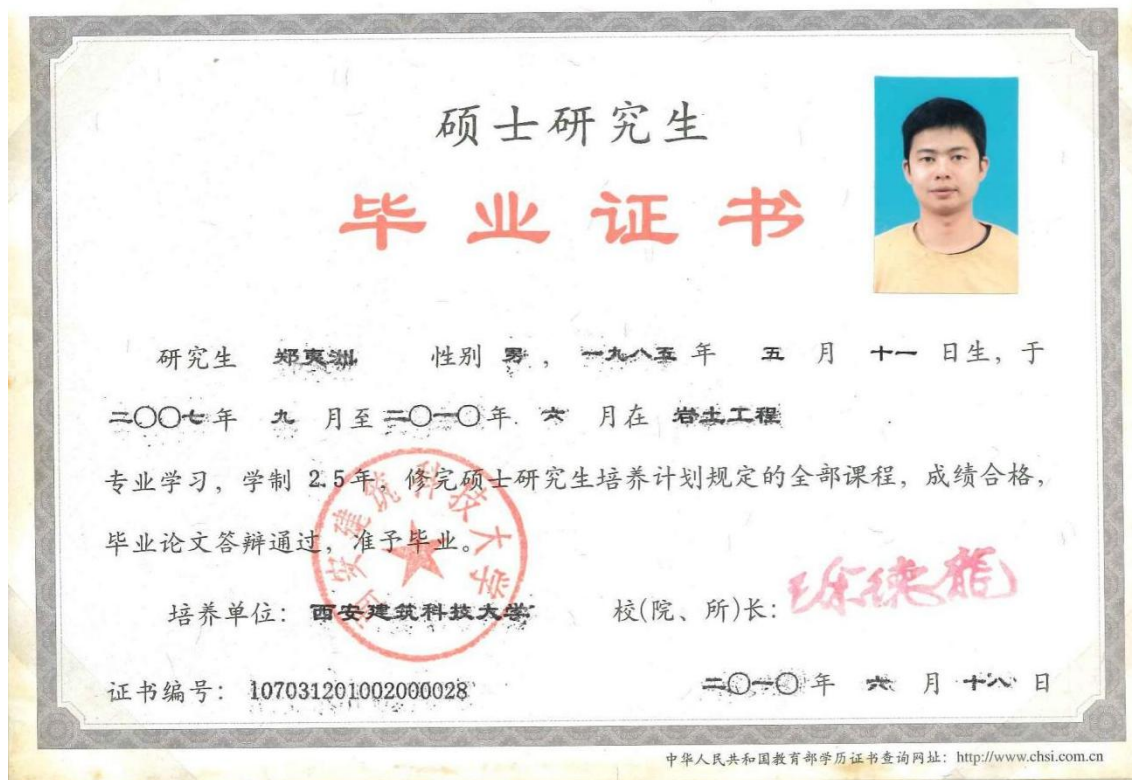 硕士研究生
毕业证书
研究生 郑夷洲 性别 男，一九八五年 五 月 十一 日生，于
二〇〇七年 九 月至二〇一〇年 六 月在 岩土工程
专业学习，学制 2.5年，修完硕士研究生培养计划规定的全部课程，成绩合格，
毕业论文答辩通过，准予毕业。
西安建筑科技大学
培养单位：西安建筑科技大学 校(院、所)长：徐德龙
证书编号：107031201002000028 二〇一〇年 六 月 十八 日
中华人民共和国教育部学历证书查询网址：http://www.chsi.com.cn